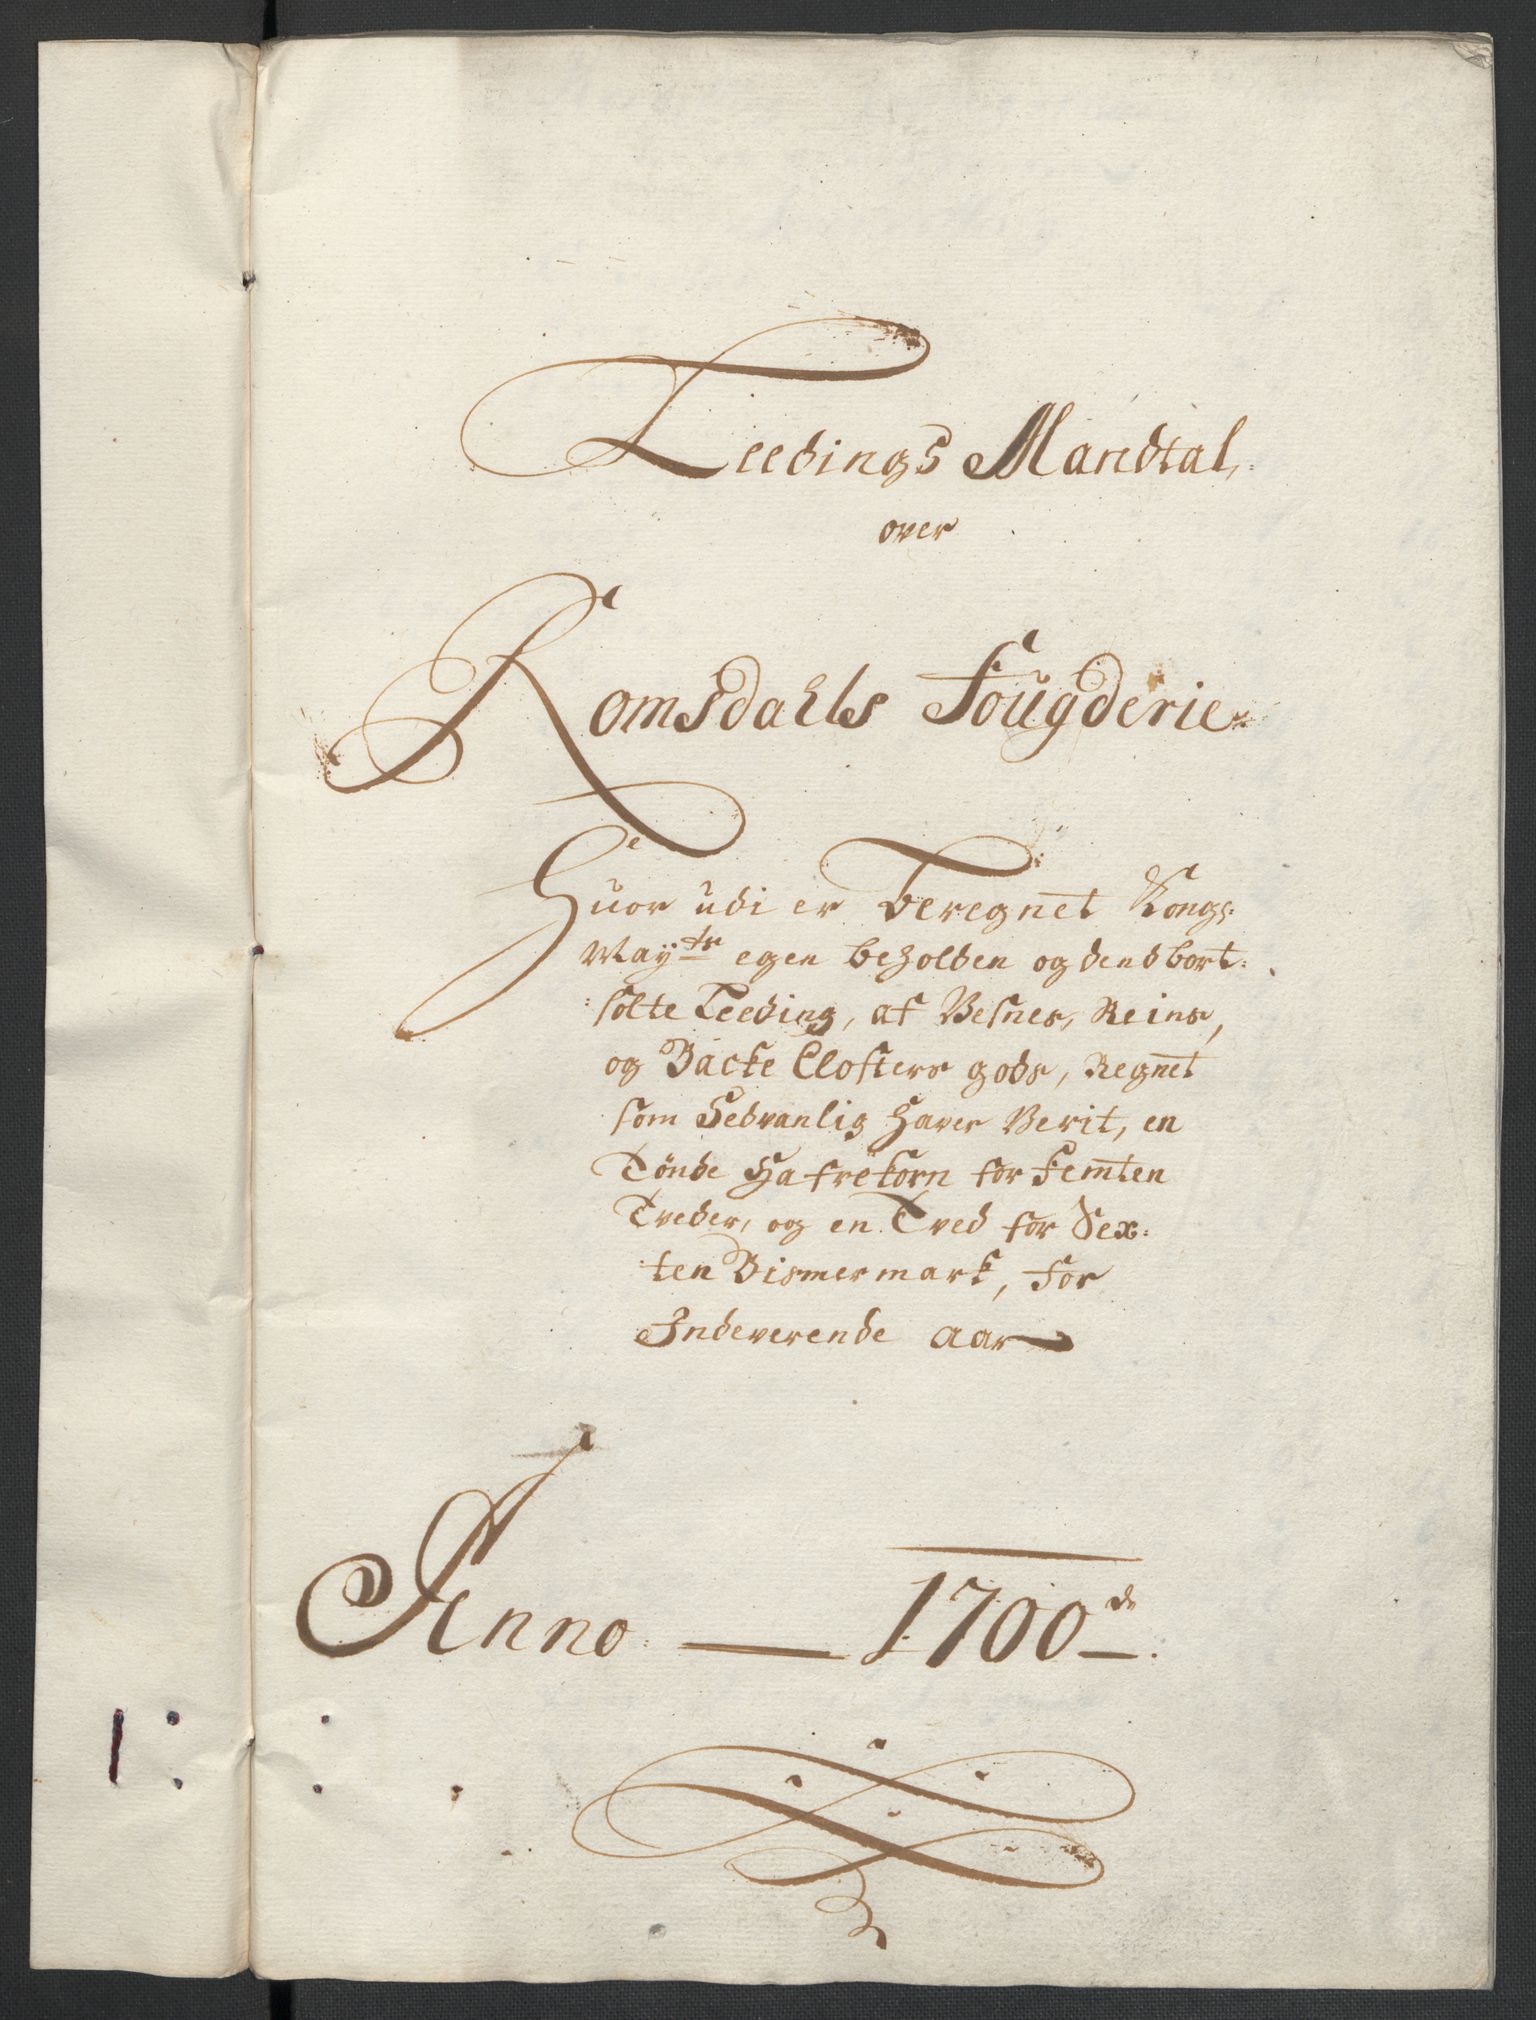 Leedings Mandtal,
over
Romsdahls Fougderie
Huor udi er Beregnet Kongs:
Mayts egen beholden og dend bort:
:solte Leeding, af Vesnes, Reins,
og Backe Closters gods, Regnet
som Sedvanlig Haver Verit, en
Tönde Hafrekorn for Femten
Tveder, og en Tved for Sex:
ten Bismermark, for
Indeverende aar
Anno 1700de